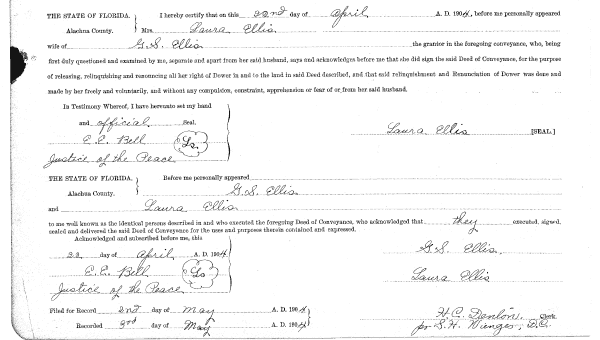 THE STATE OF FLORIDA. } I hereby certify that on this 22nd day of April A. D. 1904, before me personally appeared
Alachua County. Mrs. Laura Ellis
wife of G. S. Ellis the grantor in the foregoing conveyance, who, being
first duly questioned and examined by me, separate and apart from her said husband, says and acknowledges before me that she did sign the said Deed of Conveyance, for the purpose
of releasing, relinquishing and renouncing all her right of Dower in and to the land in said Deed described, and that said relinquishment and Renunciation of Dower was done and
made by her freely and voluntarily, and without any compulsion, constraint, apprehension or fear of or from her said husband.
In Testimony Whereof, I have hereunto set my hand
and official Seal.
E. E. Bell Ls Laura Ellis [SEAL.]
Justice of the Peace
THE STATE OF FLORIDA. } Before me personally appeared
Alachua County. G. S. Ellis
and Laura Ellis
to me well known as the identical persons described in and who executed the foregoing Deed of Conveyance, who acknowledged that they executed, signed,
sealed and delivered the said Deed of Conveyance for the uses and purposes therein contained and expressed.
Acknowledged and subscribed before me, this
22 day of April A. D. 1904 G. S. Ellis
E. E. Bell Ls Laura Ellis
Justice of the Peace
Filed for Record 2nd day of May A. D. 1904 H. C. Denton Clerk.
Recorded 3rd day of May A. D. 1904 pr S. H. Wienges, D.C.